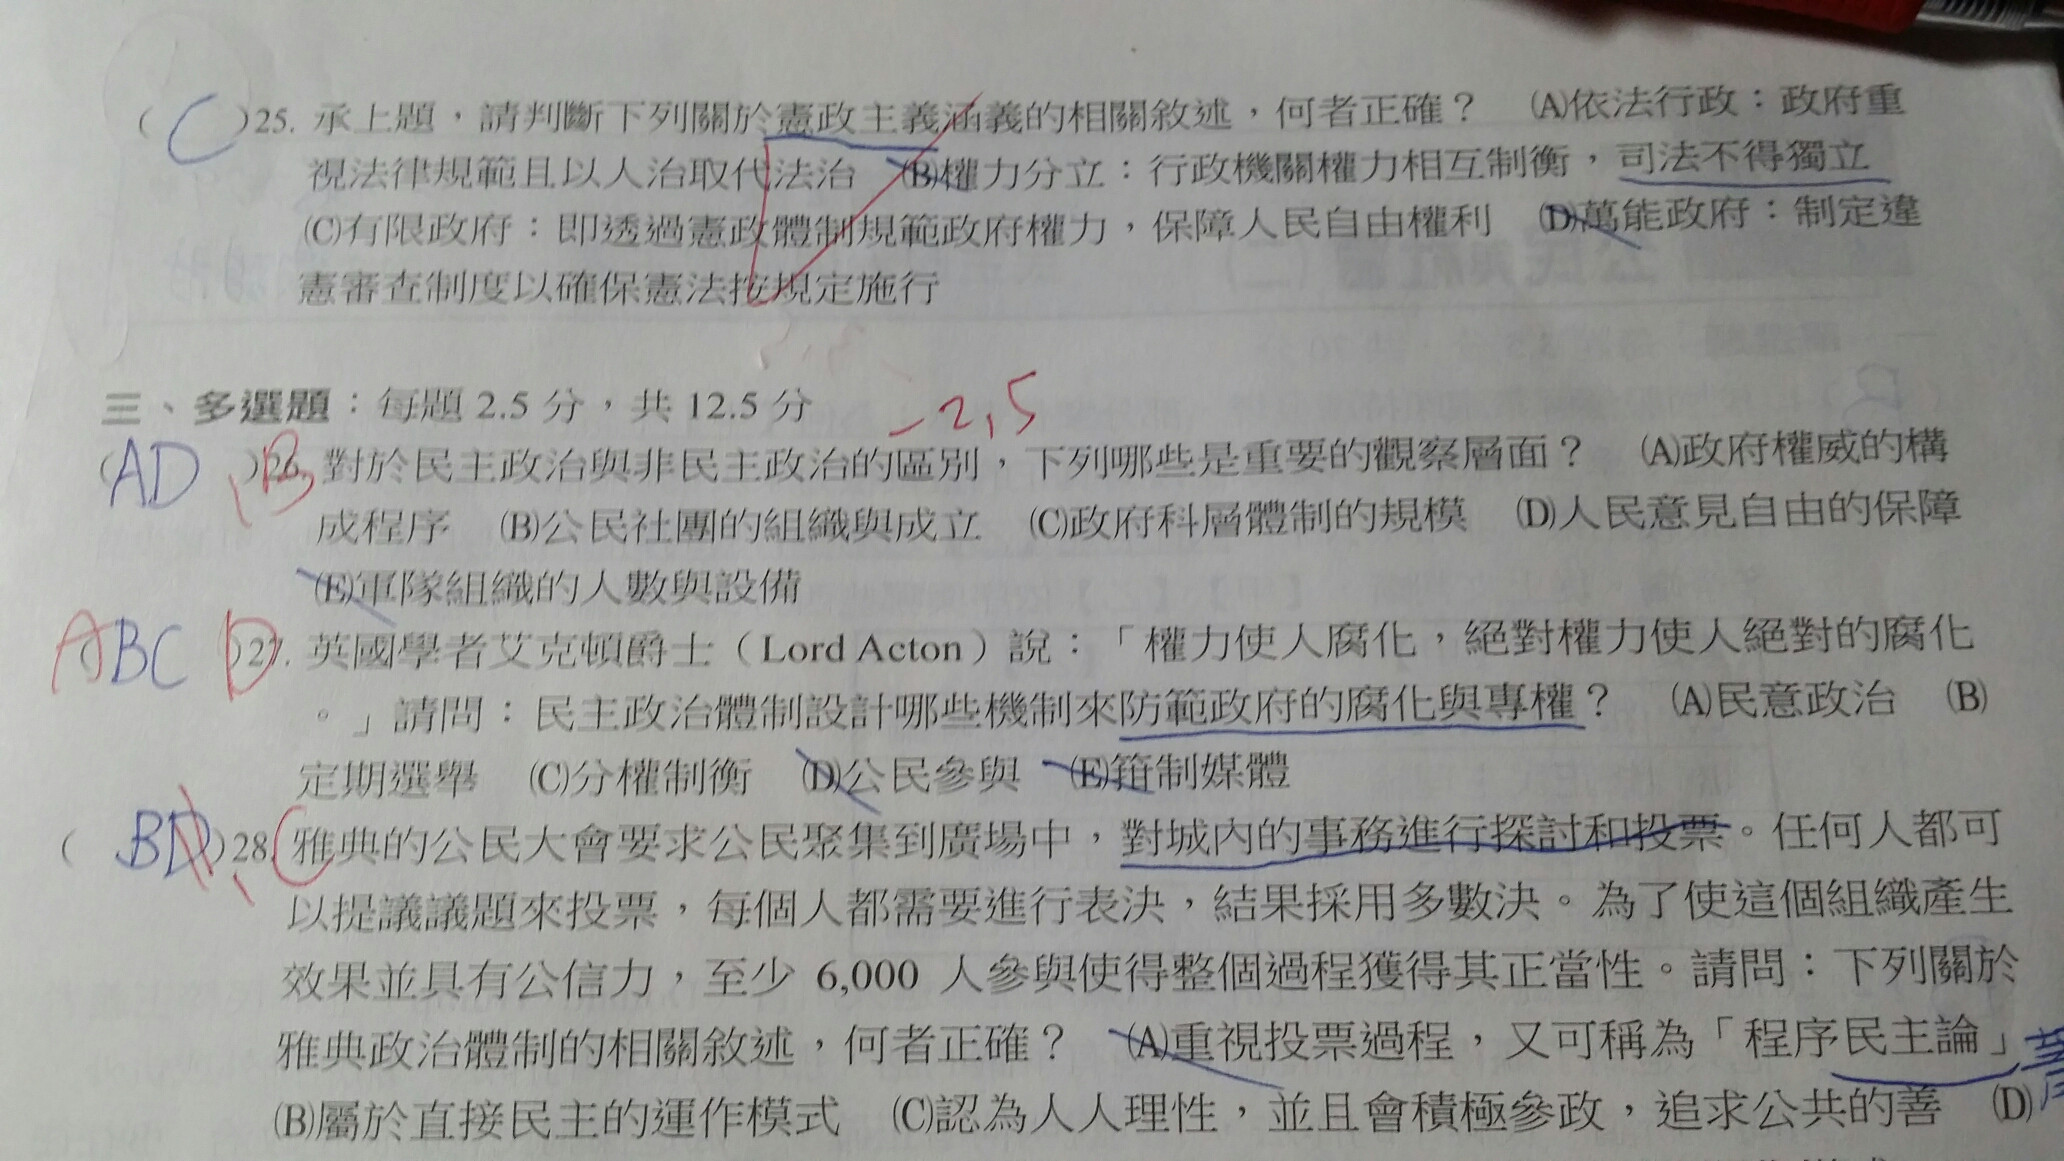 ( C )25. 承上題，請判斷下列關於憲政主義涵義的相關敘述，何者正確？ (A)依法行政：政府重
視法律規範且以人治取代法治 (B)權力分立：行政機關權力相互制衡，司法不得獨立
(C)有限政府：即透過憲政體制規範政府權力，保障人民自由權利 (D)萬能政府：制定違
憲審查制度以確保憲法按規定施行
三、多選題：每題 2.5 分，共 12.5 分 -2,5
(AD )26. B 對於民主政治與非民主政治的區別，下列哪些是重要的觀察層面？ (A)政府權威的構
成程序 (B)公民社團的組織與成立 (C)政府科層體制的規模 (D)人民意見自由的保障
(E)軍隊組織的人數與設備
ABC D )27. 英國學者艾克頓爵士（Lord Acton）說：「權力使人腐化，絕對權力使人絕對的腐化
。」請問：民主政治體制設計哪些機制來防範政府的腐化與專權？ (A)民意政治 (B)
定期選舉 (C)分權制衡 (D)公民參與 (E)箝制媒體
( BD )28. C 雅典的公民大會要求公民聚集到廣場中，對城內的事務進行探討和投票。任何人都可
以提議議題來投票，每個人都需要進行表決，結果採用多數決。為了使這個組織產生
效果並具有公信力，至少 6,000 人參與使得整個過程獲得其正當性。請問：下列關於
雅典政治體制的相關敘述，何者正確？ (A)重視投票過程，又可稱為「程序民主論」
(B)屬於直接民主的運作模式 (C)認為人人理性，並且會積極參政，追求公共的善 (D)